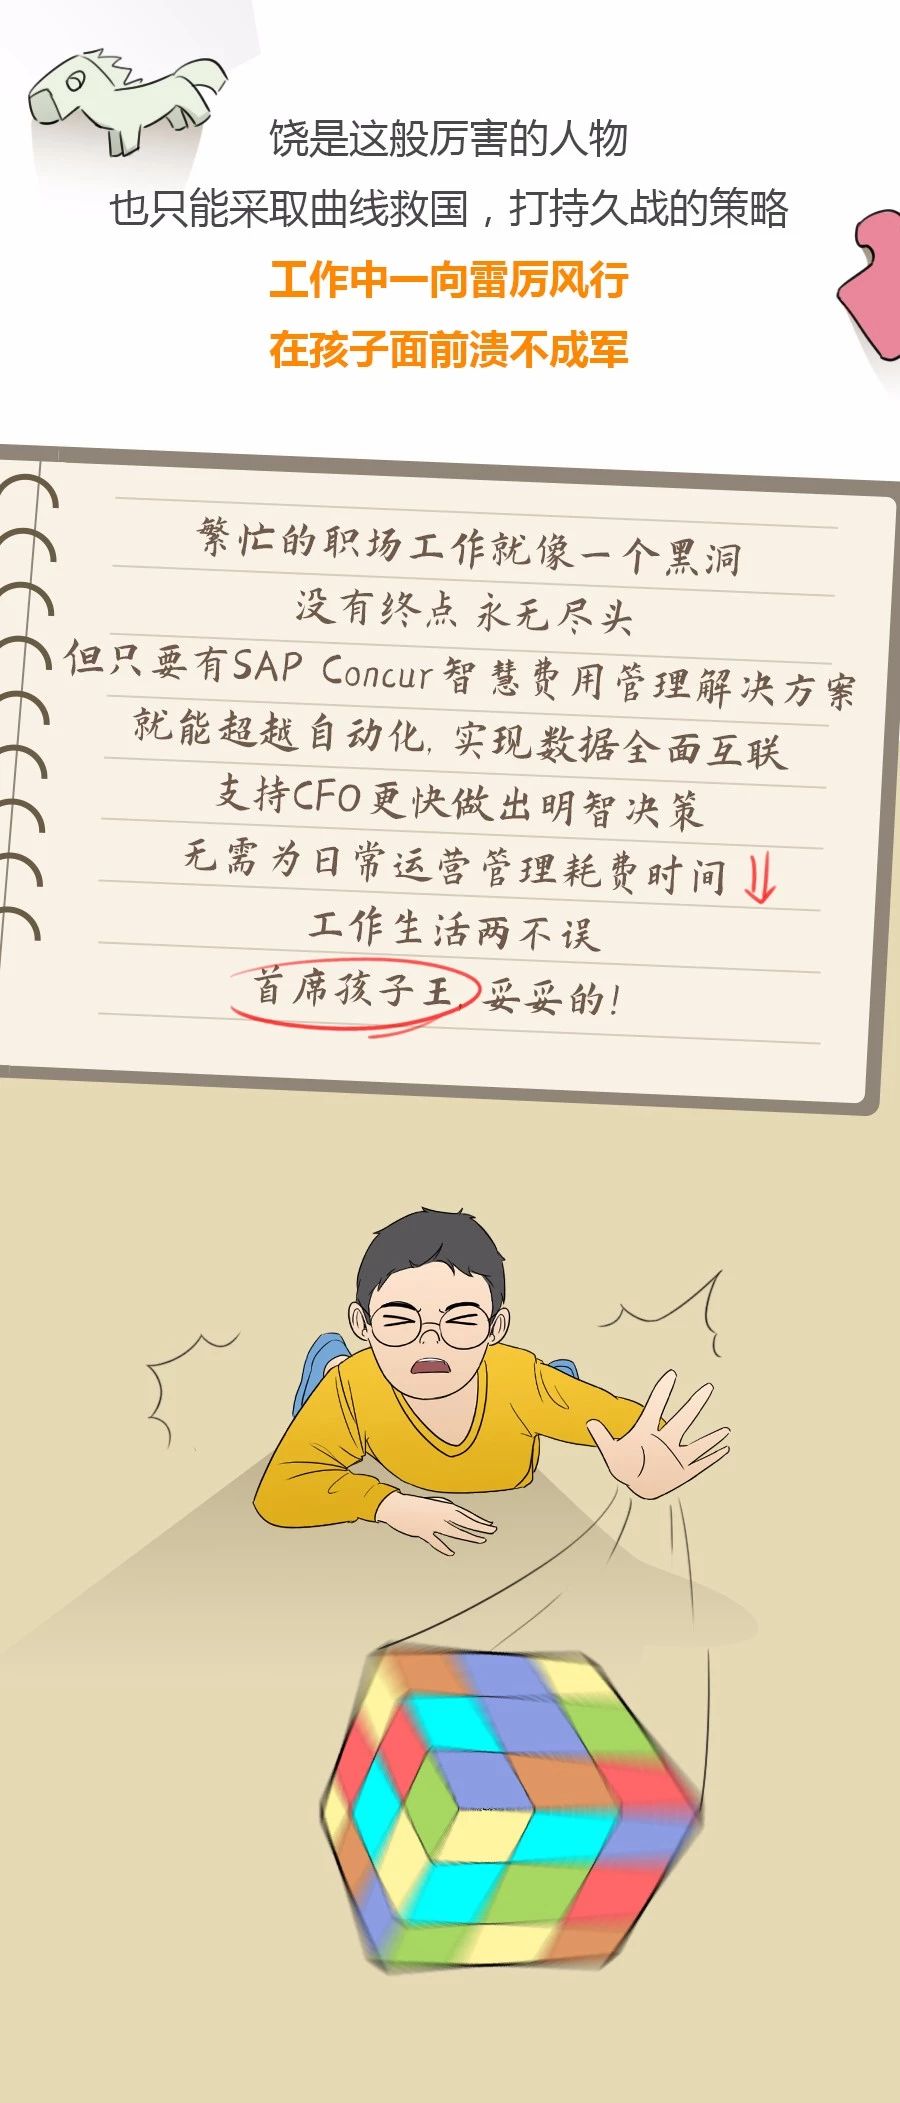 饶是这般厉害的人物
也只能采取曲线救国，打持久战的策略
工作中一向雷厉风行
在孩子面前溃不成军
繁忙的职场工作就像一个黑洞
没有终点 永无尽头
但只要有SAP Concur智慧费用管理解决方案
就能超越自动化, 实现数据全面互联
支持CFO更快做出明智决策
无需为日常运营管理耗费时间
工作生活两不误
首席孩子王, 妥妥的!